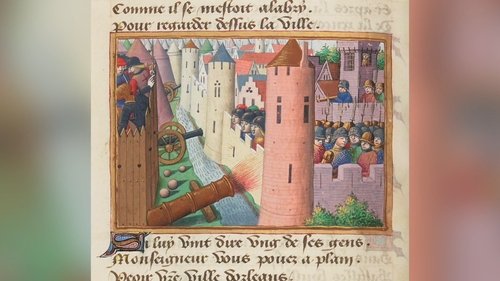 Comme il se mestoit alabry.
Pour regarder dessus la ville.
Si luy vint dire vng de ses gens.
Monseigneur vous pouez a plain
Veoir vre ville dorleans